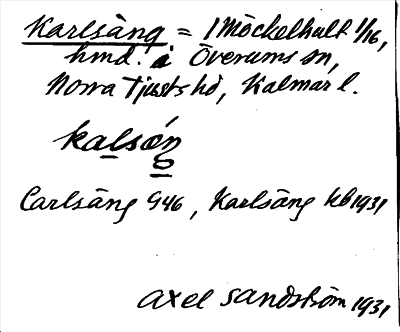 Karlsäng = 1 Möckelhult 1/16,
hmd. i Överums sn,
Norra Tjusts hd, Kalmar l.
kalsóŋ
Carlsäng G46, Karlsäng kb 1931
Axel Sandström 1931